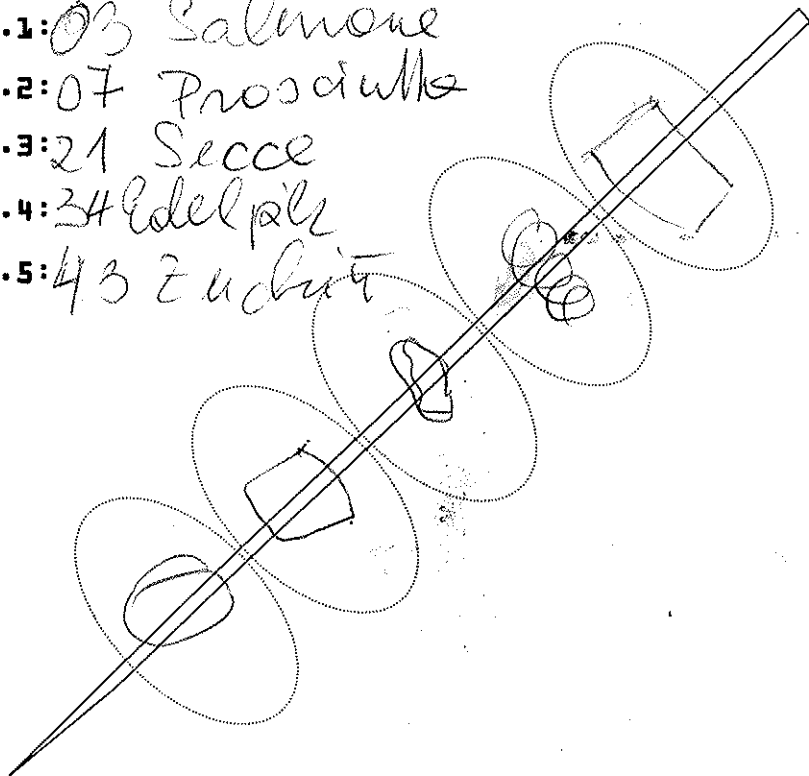 .1: 03 Salmone
.2: 07 Prosciutto
.3: 21 Secce
.4: 34 Edelpilz
.5: 43